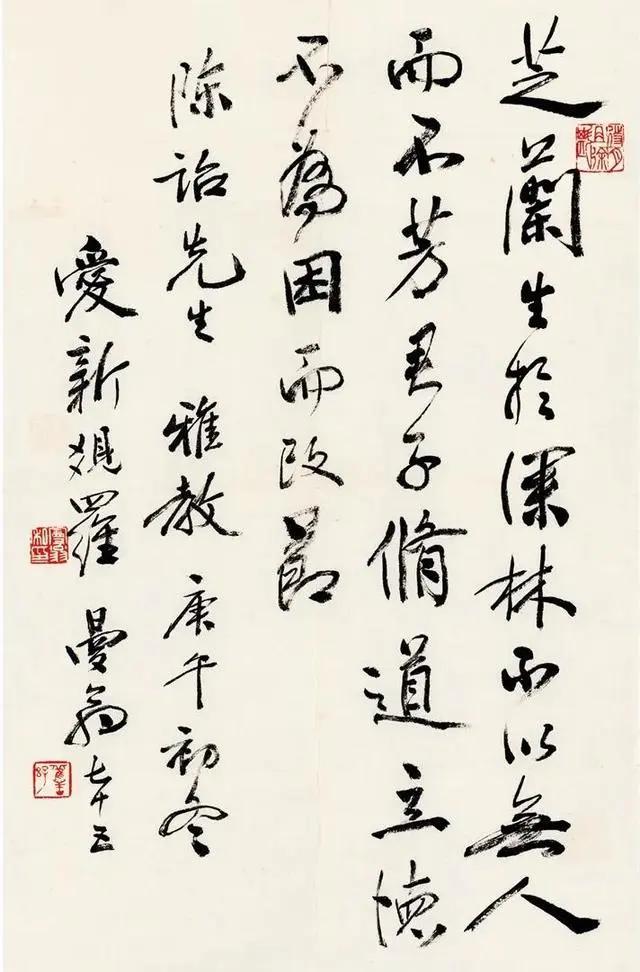 芝蘭生於深林不以無人
而不芳君子脩道立德
不為困而改節
陳詒先生 雅教 庚午初冬
愛新覺羅 曼翁 七十五